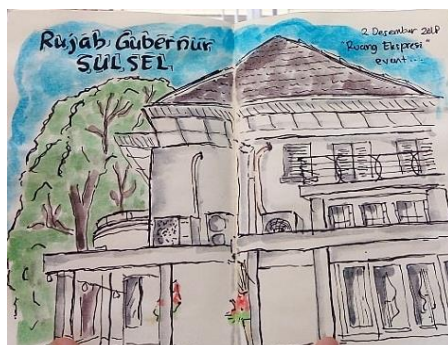 Rujab Gubernur
SULSEL
2 Desember 2018
"Ruang Ekspresi"
event...